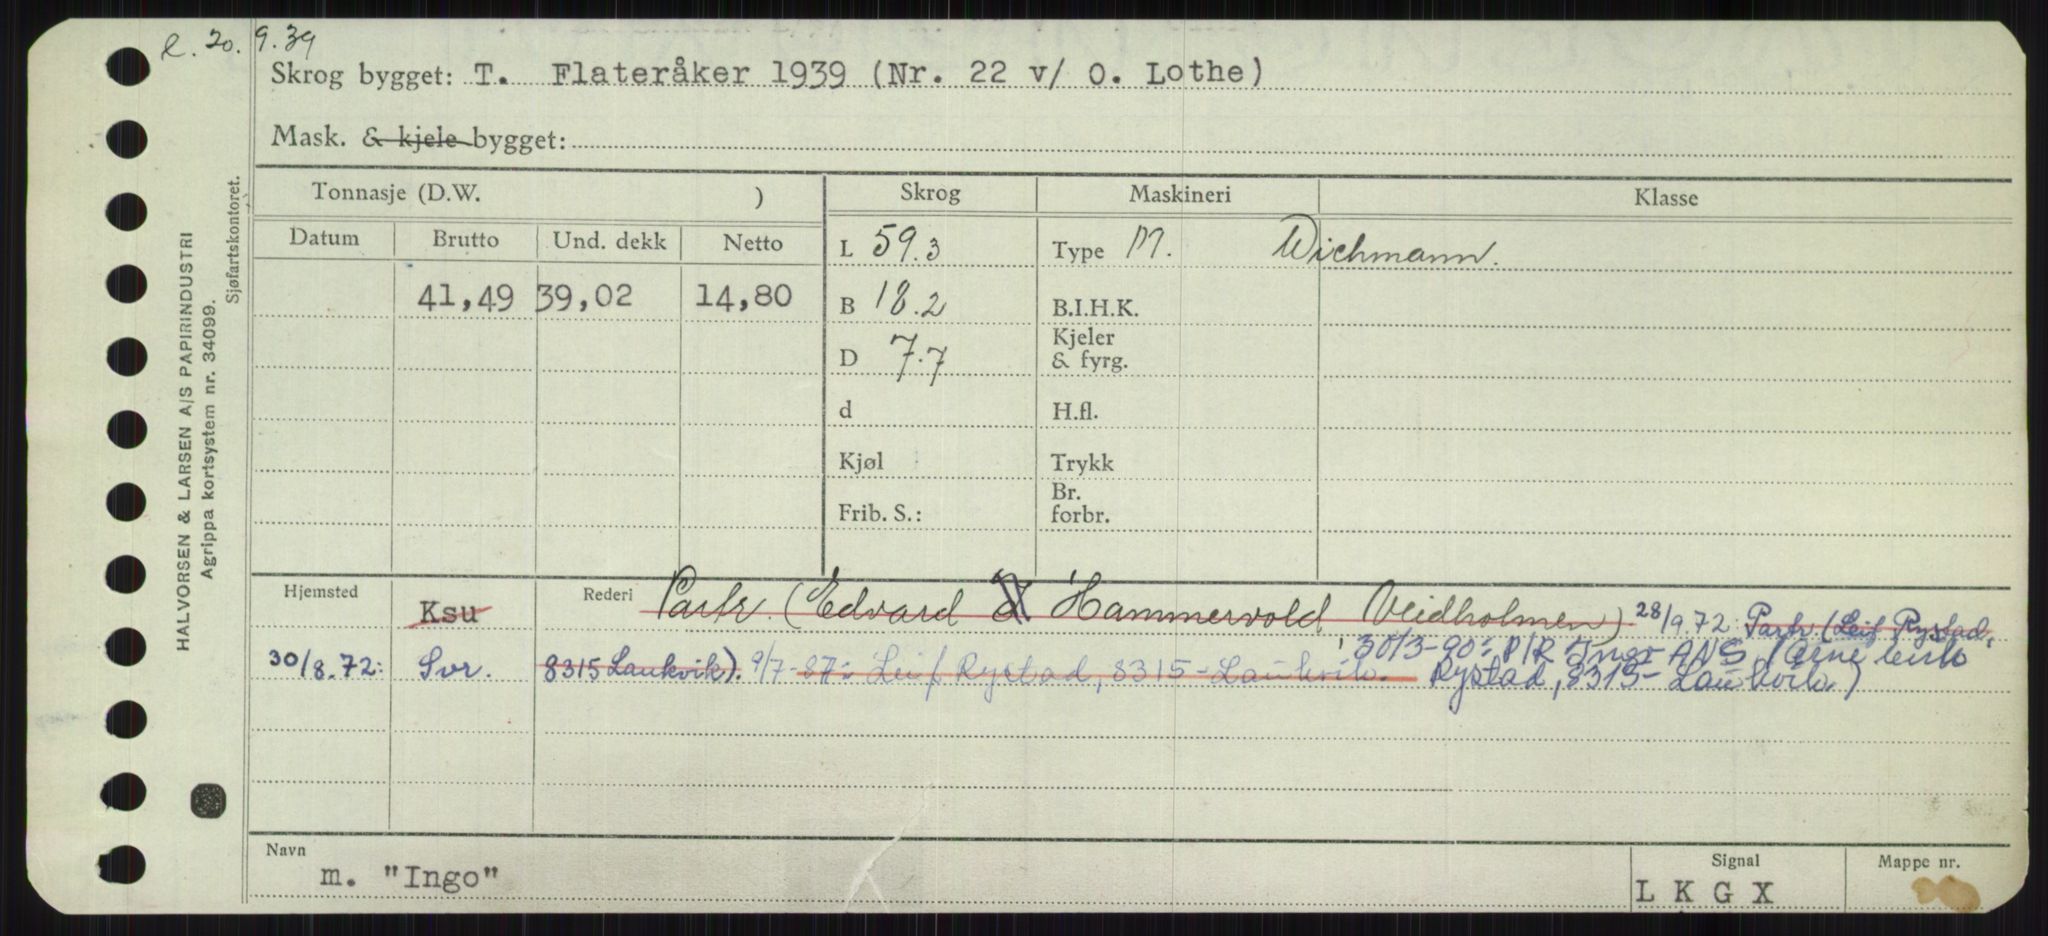 l. 20. 9.39
Skrog bygget: T. Flateråker 1939 (Nr. 22 v/ O. Lothe)
Mask. & kjele bygget:
Tonnasje (D.W. )
Skrog
Maskineri
Klasse
Datum Brutto Und. dekk Netto
L 59.3
Type M. Wichmann.
41,49 39,02 14,80
B 18.2
B.I.H.K.
D 7.7
Kjeler
& fyrg.
d
H.fl.
Kjøl
Trykk
Frib. S.:
Br.
forbr.
Hjemsted Ksu Rederi Partr. (Edvard Hammervold Veidholmen) 28/9.72 Partr (Leif Rystad,
30/8.72: Svr. 8315 Laukvik). 9/7-87: Leif Rystad, 8315-Laukvik. 30/3-90: P/R Ingo ANS (Arne Leif
Rystad, 8315-Laukvik)
Navn m. "Ingo"
Signal L K G X
Mappe nr.
HALVORSEN & LARSEN A/S PAPIRINDUSTRI
Agrippa kortsystem nr. 34099.
Sjøfartskontoret.